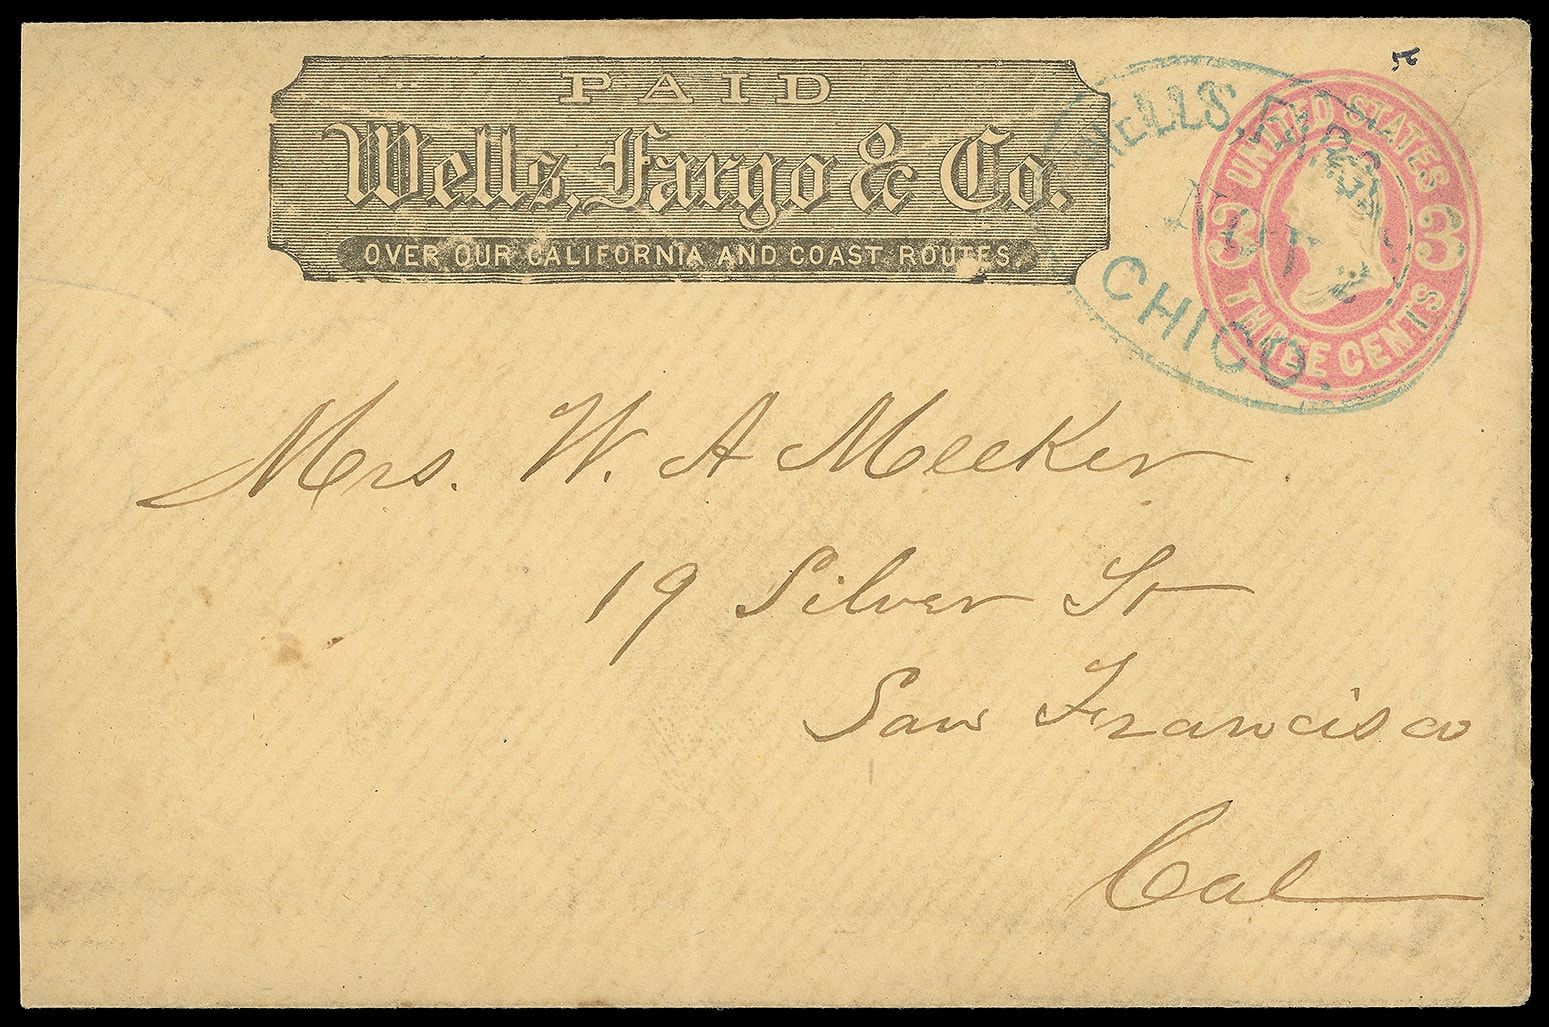 PAID
Wells, Fargo & Co.
OVER OUR CALIFORNIA AND COAST ROUTES.
WELLS, FARGO
NOV
CHICO.
UNITED STATES
3 3
THREE CENTS
56
Mrs. W. A Meeker
19 Silver St
San Francisco
Cal